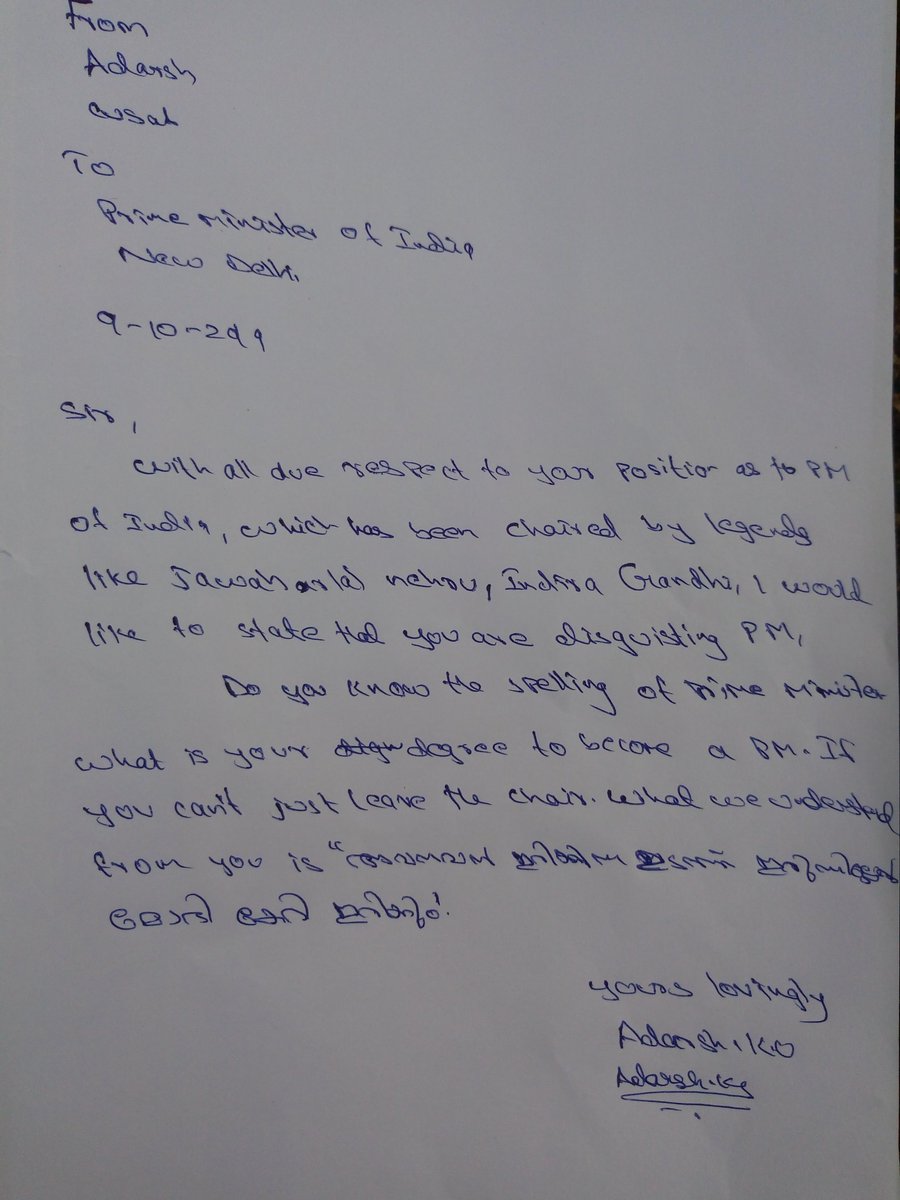 From
Adarsh
cusat
To
Prime Minister of India
New Delhi
9-10-2019
Sir,
with all due respect to your position as to PM
of India, which has been chaired by legends
like Jawaharlal nehru, Indira Gandhi, I would
like to state that you are disguisting PM,
Do you know the spelling of Prime Minister
what is your degree to become a PM. If
you can't just leave the chair. What we understand
from you is "
മോദി കേറി ഇരിക്കും".
yours lovingly
Adarsh.K.O
Adarsh.K